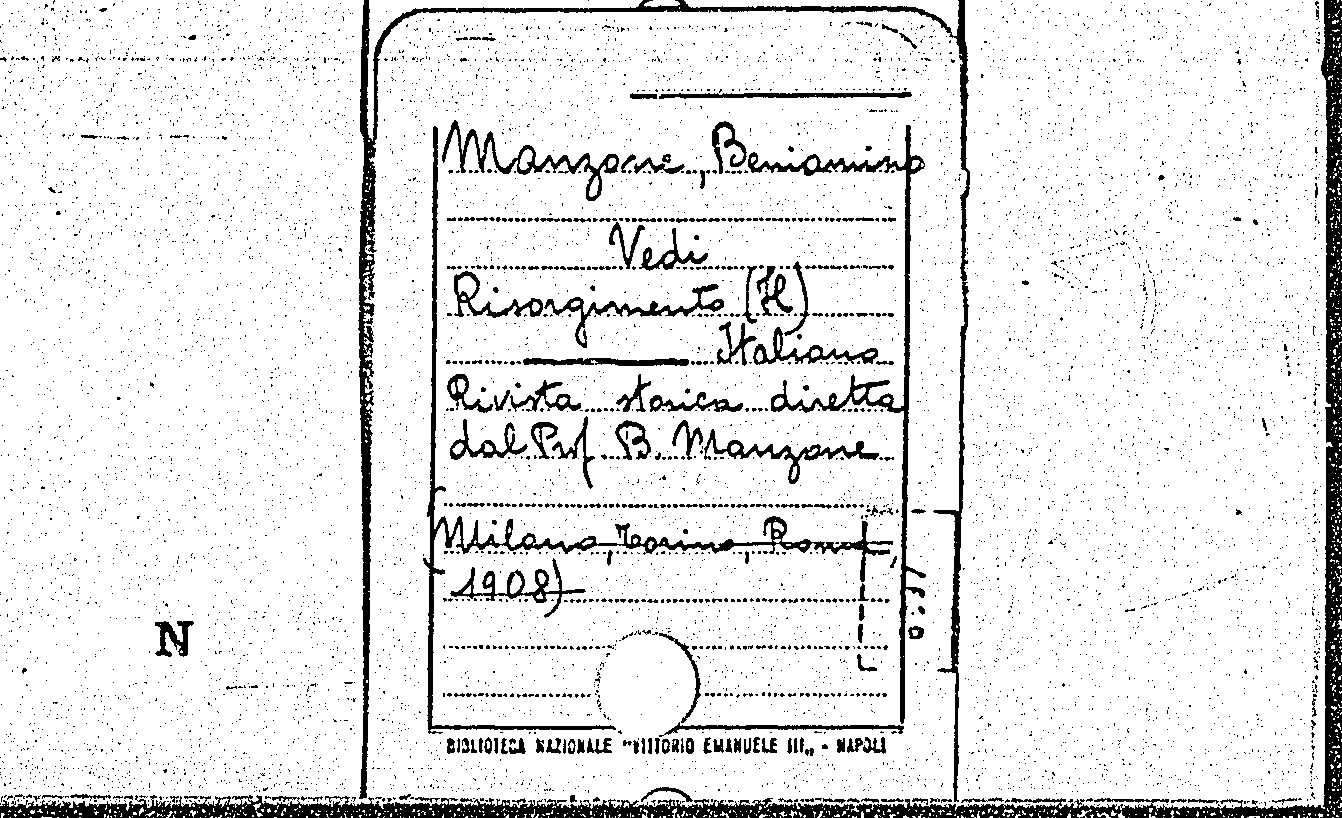 Manzone, Beniamino
Vedi
Risorgimento (Il)
Italiano
Rivista storica diretta
dal Prof. B. Manzone
(Milano, Torino, Roma,
1908)
N
BIBLIOTECA NAZIONALE "VITTORIO EMANUELE III„ - NAPOLI